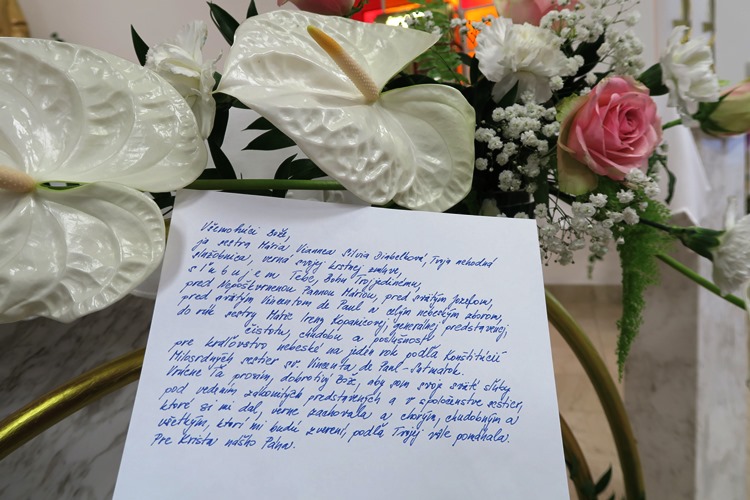 Všemohúci Bože,
ja sestra Mária Viannea Silvia Diabelková, Tvoja nehodná
služobnica, verná svojej krstnej zmluve,
s ľ u b u j e m Tebe, Bohu Trojjedinému,
pred Nepoškvrnenou Pannou Máriou, pred svätým Jozefom,
pred svätým Vincentom de Paul a celým nebeským zborom,
do rúk sestry Matie Ireny Kopanicovej, generálnej predstavenej,
čistotu, chudobu a poslušnosť
pre kráľovstvo nebeské na jeden rok podľa Konštitúcií
Milosrdných sestier sv. Vincenta de Paul - Satmárok.
Vrúcne Ťa prosím, dobrotivý Bože, aby som svoje sväté sľuby
pod vedením zákonitých predstavených a v spoločenstve sestier,
ktoré si mi dal, verne zachovala a chorým, chudobným a
všetkým, ktorí mi budú zverení, podľa Tvojej vôle pomáhala.
Pre Krista nášho Pána.